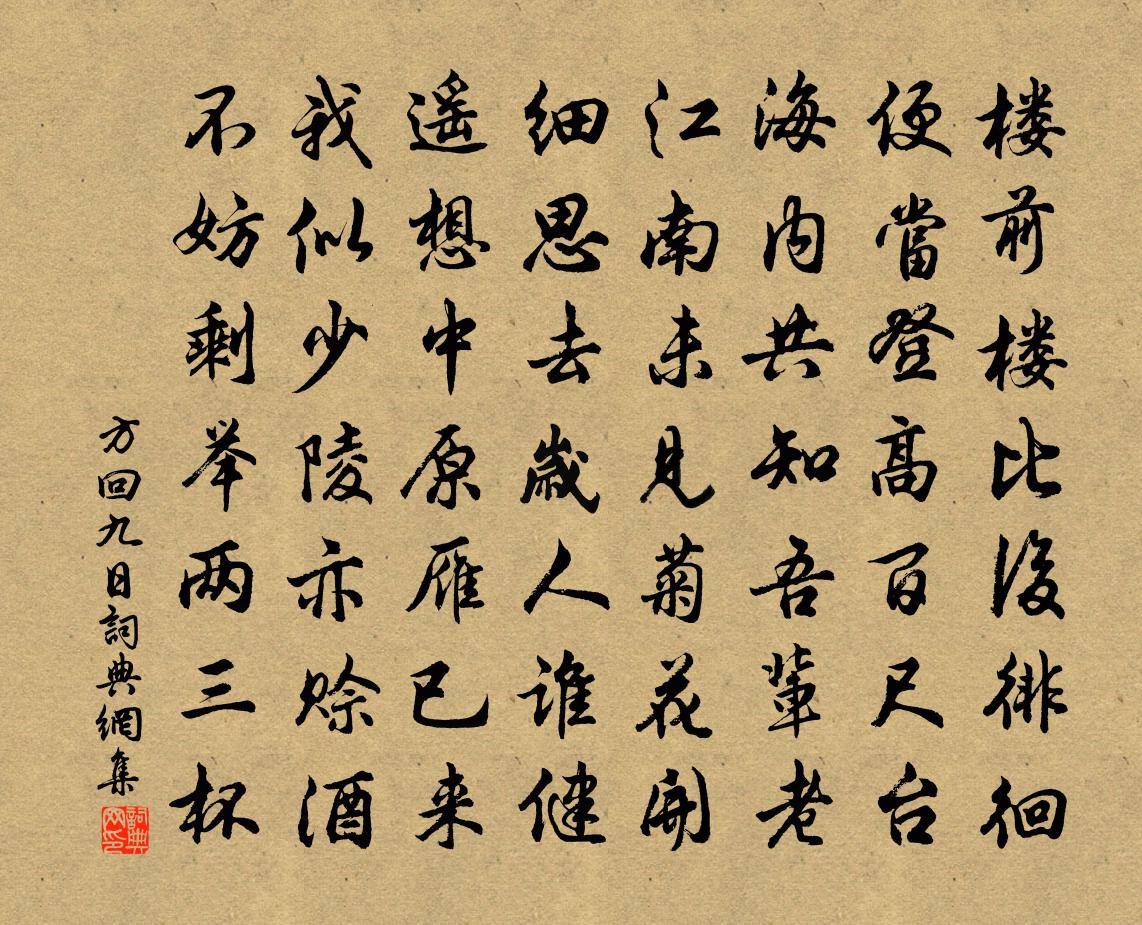 楼前楼比後徘徊
便當登高百尺台
海内共知吾輩老
江南未見菊花開
细思去歲人谁健
遥想中原雁已来
我似少陵亦赊酒
不妨剩举两三杯
方回九日詞典網集
詞典网印